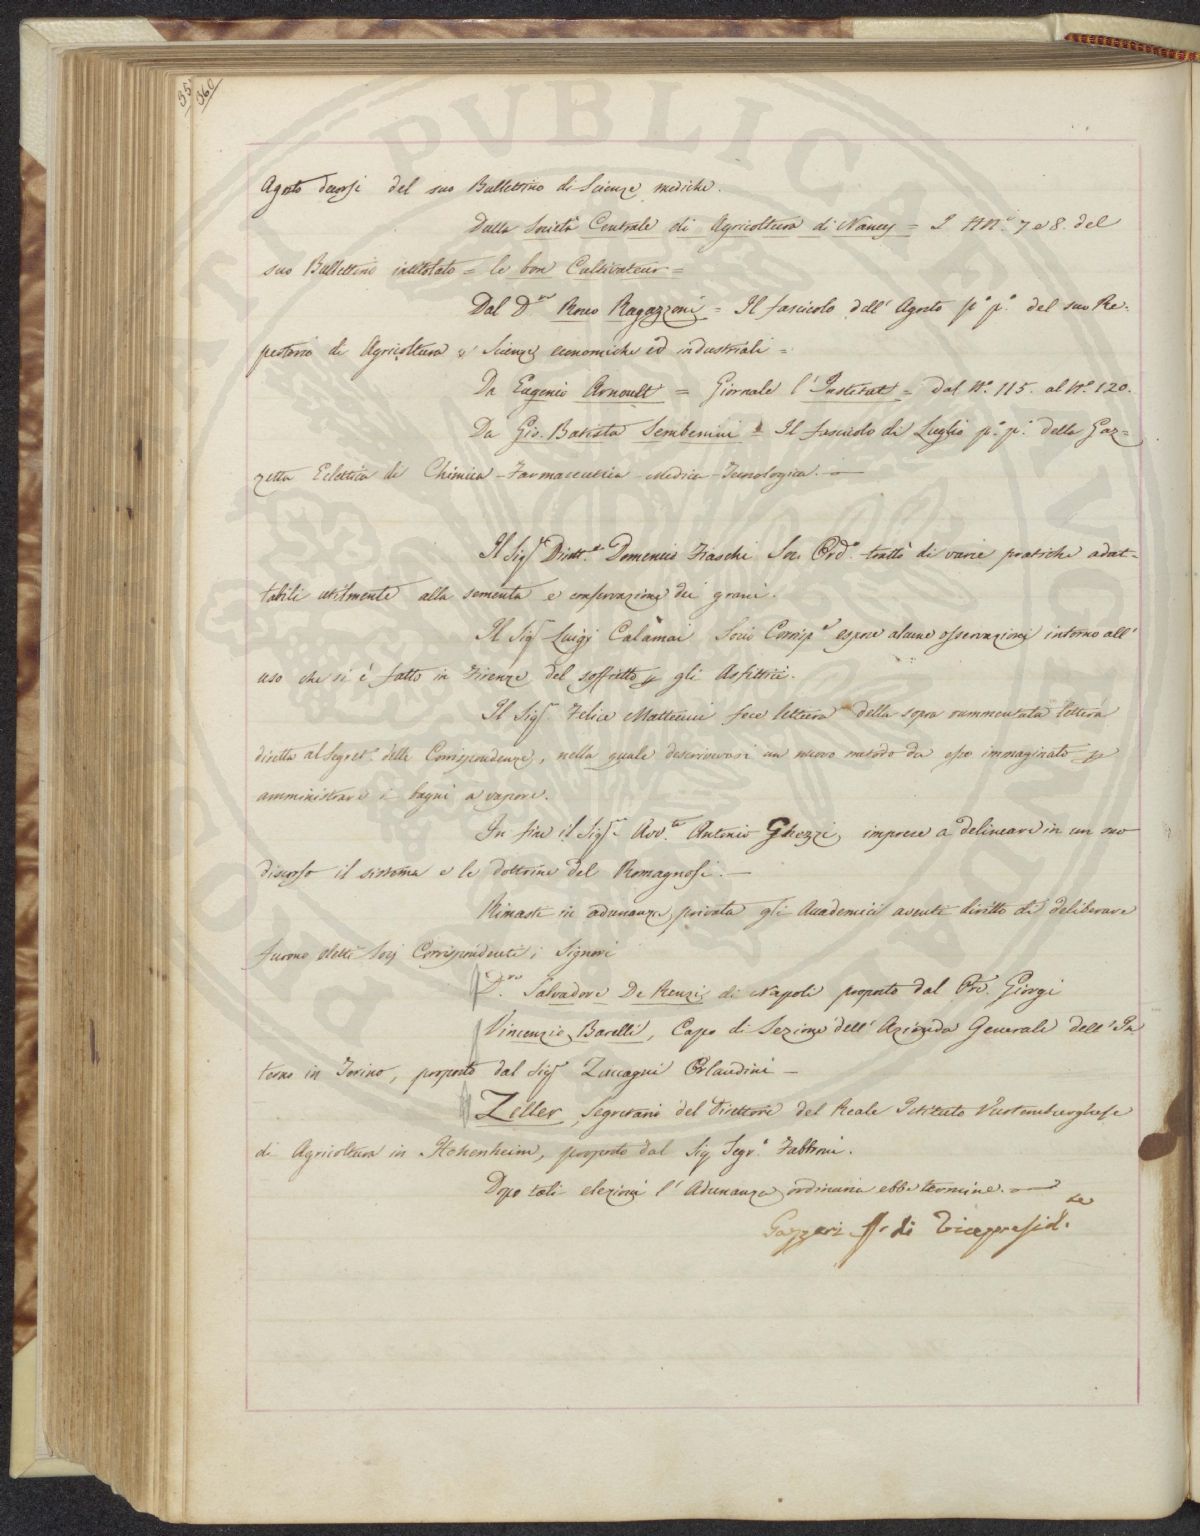 35
360
Agosto decorsi del suo Bullettino di Scienze mediche.
Dalla Società Centrale di Agricoltura di Nancy = I NN.i 7 e 8. del
suo Bullettino intitolato = le bon Cultivateur =
Dal D.re Rocco Ragazzoni = Il fascicolo dell' Agosto p.o p.o del suo Re-
pertorio di Agricoltura e Scienze economiche ed industriali =
Da Eugenio Arnoult = Giornale l'Institut = dal N.o 115. al N.o 120.
Da Gio. Batista Sembenini = Il fascicolo di Luglio p.o p.o della Gaz-
zetta Eclettica di Chimica-Farmaceutica-Medica-Tecnologica.
Il Sig.r Dott.re Domenico Fraschi Soc. Ord.o trattò di varie pratiche adat-
tabili utilmente alla sementa e conservazione dei grani.
Il Sig.r Luigi Calamai Socio Corrisp.e espose alcune osservazioni intorno all'
uso che si è fatto in Firenze del soffietto p gli Asfittici.
Il Sig.r Felice Matteucci fece lettura della sopra rammentata lettera
diretta al Segret.o delle Corrispondenze, nella quale descrivevasi un nuovo metodo da esso immaginato p
amministrare i bagni a vapore.
In fine il Sig.r Avv.to Antonio Ghezzi imprese a delineare in un suo
discorso il sistema e le dottrine del Romagnosi.
Rimasti in adunanza privata gli Accademici aventi diritto di deliberare
furono eletti Socj Corrispondenti i Signori
D.re Salvadore De Renzi di Napoli proposto dal Pre. Giorgi
Vincenzio Barelli, Capo di Sezione dell' Azienda Generale dell' In
terno in Torino, proposto dal Sig.r Zuccagni Orlandini
Zeller, Segretario del Direttore del Reale Istituto Vurtemberghese
di Agricoltura in Hohenheim, proposto dal Sig. Segr.o Fabbroni.
Dopo tali elezioni l' Adunanza ordinaria ebbe termine.
Gazzeri ff. di Vicepresid.te